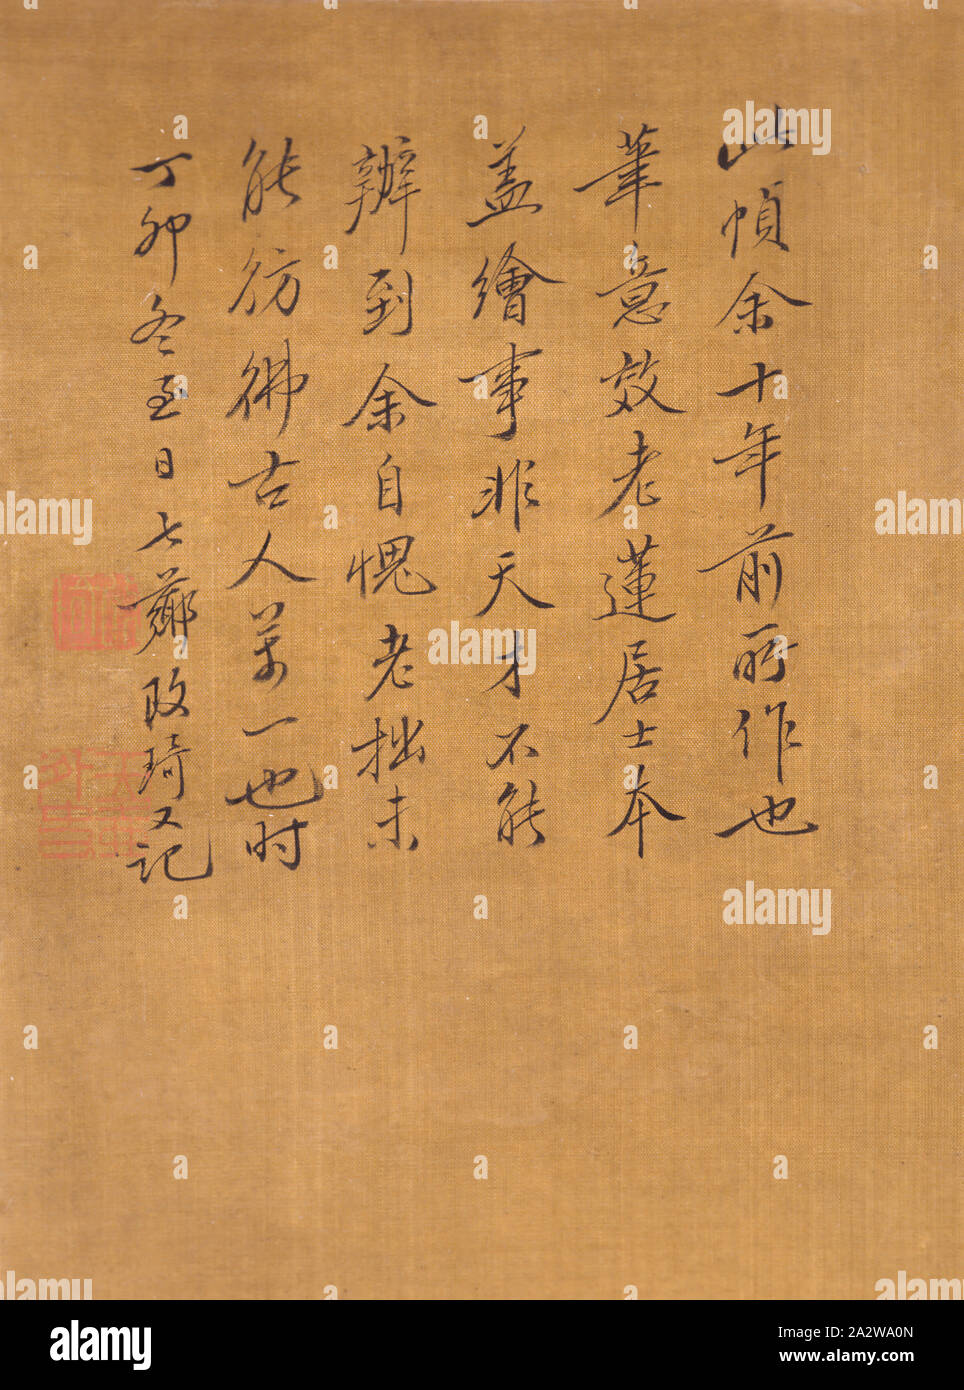 此幀余十年前所作也
筆意效老蓮居士本
蓋繪事非天才不能
辦到余自愧老拙未
能彷彿古人萬一也时
丁卯冬至日七薌改琦又記
alamy
Image ID: 2A2WA0N
www.alamy.com